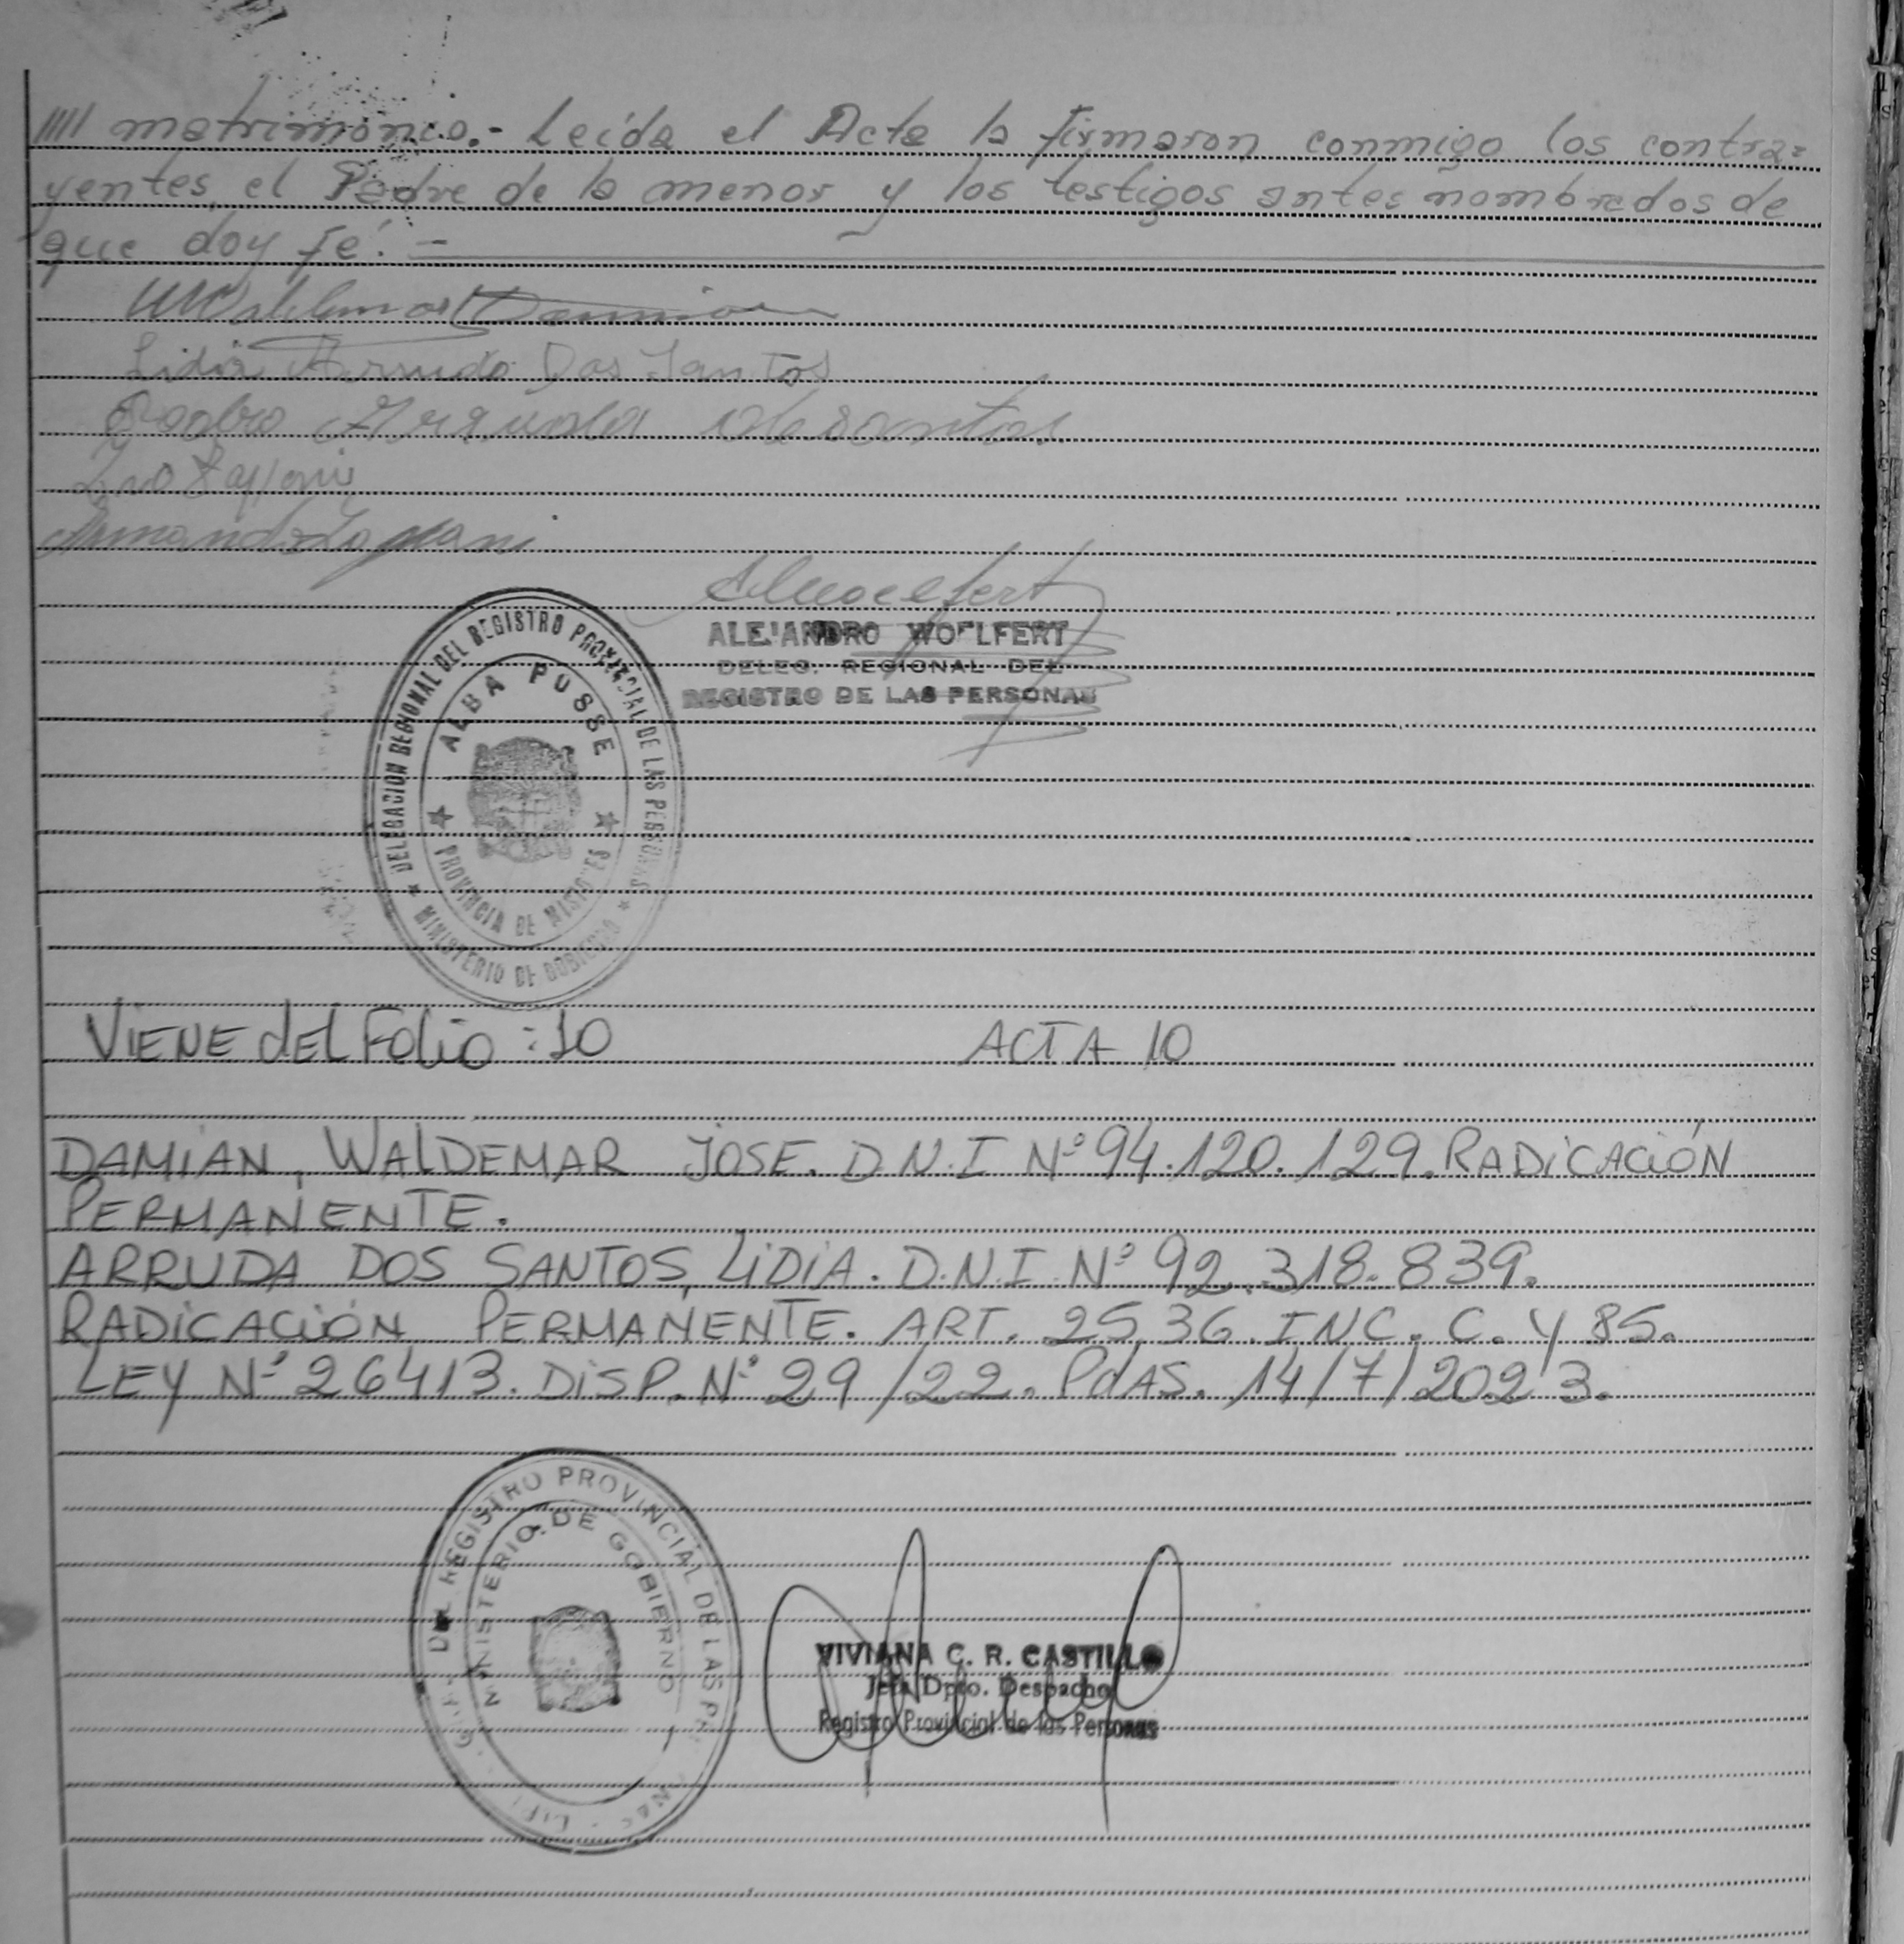 //// matrimonio.- Leída el Acta la firmaron conmigo los contra=
yentes, el Padre de la menor y los testigos antes nombrados de
que doy fé. -
Waldemar Damian
Lidia Arruda Dos Santos
Pedro Arruda de santos
Armando
ALEJANDRO WOELFERT
DELEG. REGIONAL DEL
REGISTRO DE LAS PERSONAS
DELEGACION REGIONAL DEL REGISTRO PROVINCIAL DE LAS PERSONAS
ALBA POSSE
PROVINCIA DE MISIONES
MINISTERIO DE GOBIERNO
VIENE dEL Folio : 10 ACTA 10
DAMIAN, WALDEMAR JOSE. D.N.I Nº 94.120.129. RADICACIÓN
PERMANENTE.
ARRUDA DOS SANTOS, LIDIA. D.N.I. Nº 92.318.839.
RADICACIÓN PERMANENTE. ART. 25,36. INC. C. y 85.
LEY Nº 26413. DISP. Nº 29/22. PdAS. 14/7/2023.
REGISTRO PROVINCIAL DE LAS
MINISTERIO DE GOBIERNO
VIVIANA C. R. CASTILLO
Jefa Dpto. Despacho
Registro Provincial de las Personas